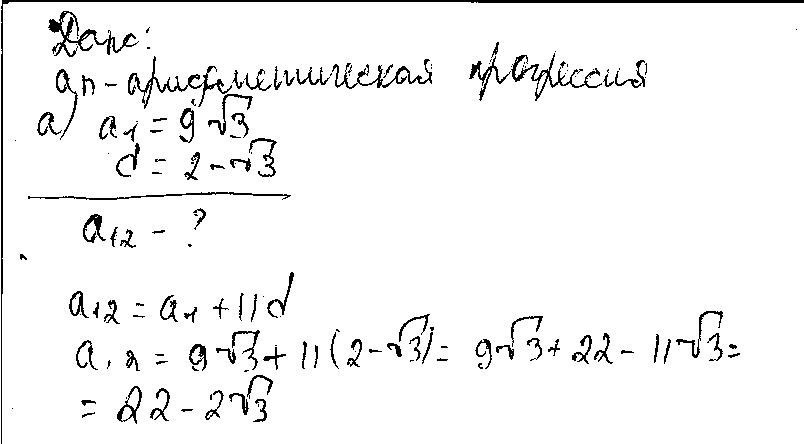 Дано:
an - арифметическая прогрессия
а) a₁ = 9√3
d = 2 - √3
a₁₂ - ?
a₁₂ = a₁ + 11d
a₁₂ = 9√3 + 11(2 - √3) = 9√3 + 22 - 11√3 =
= 22 - 2√3